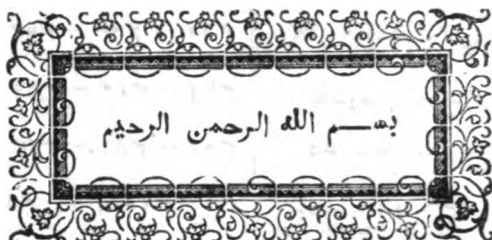 بســم الله الرحمن الرحيم